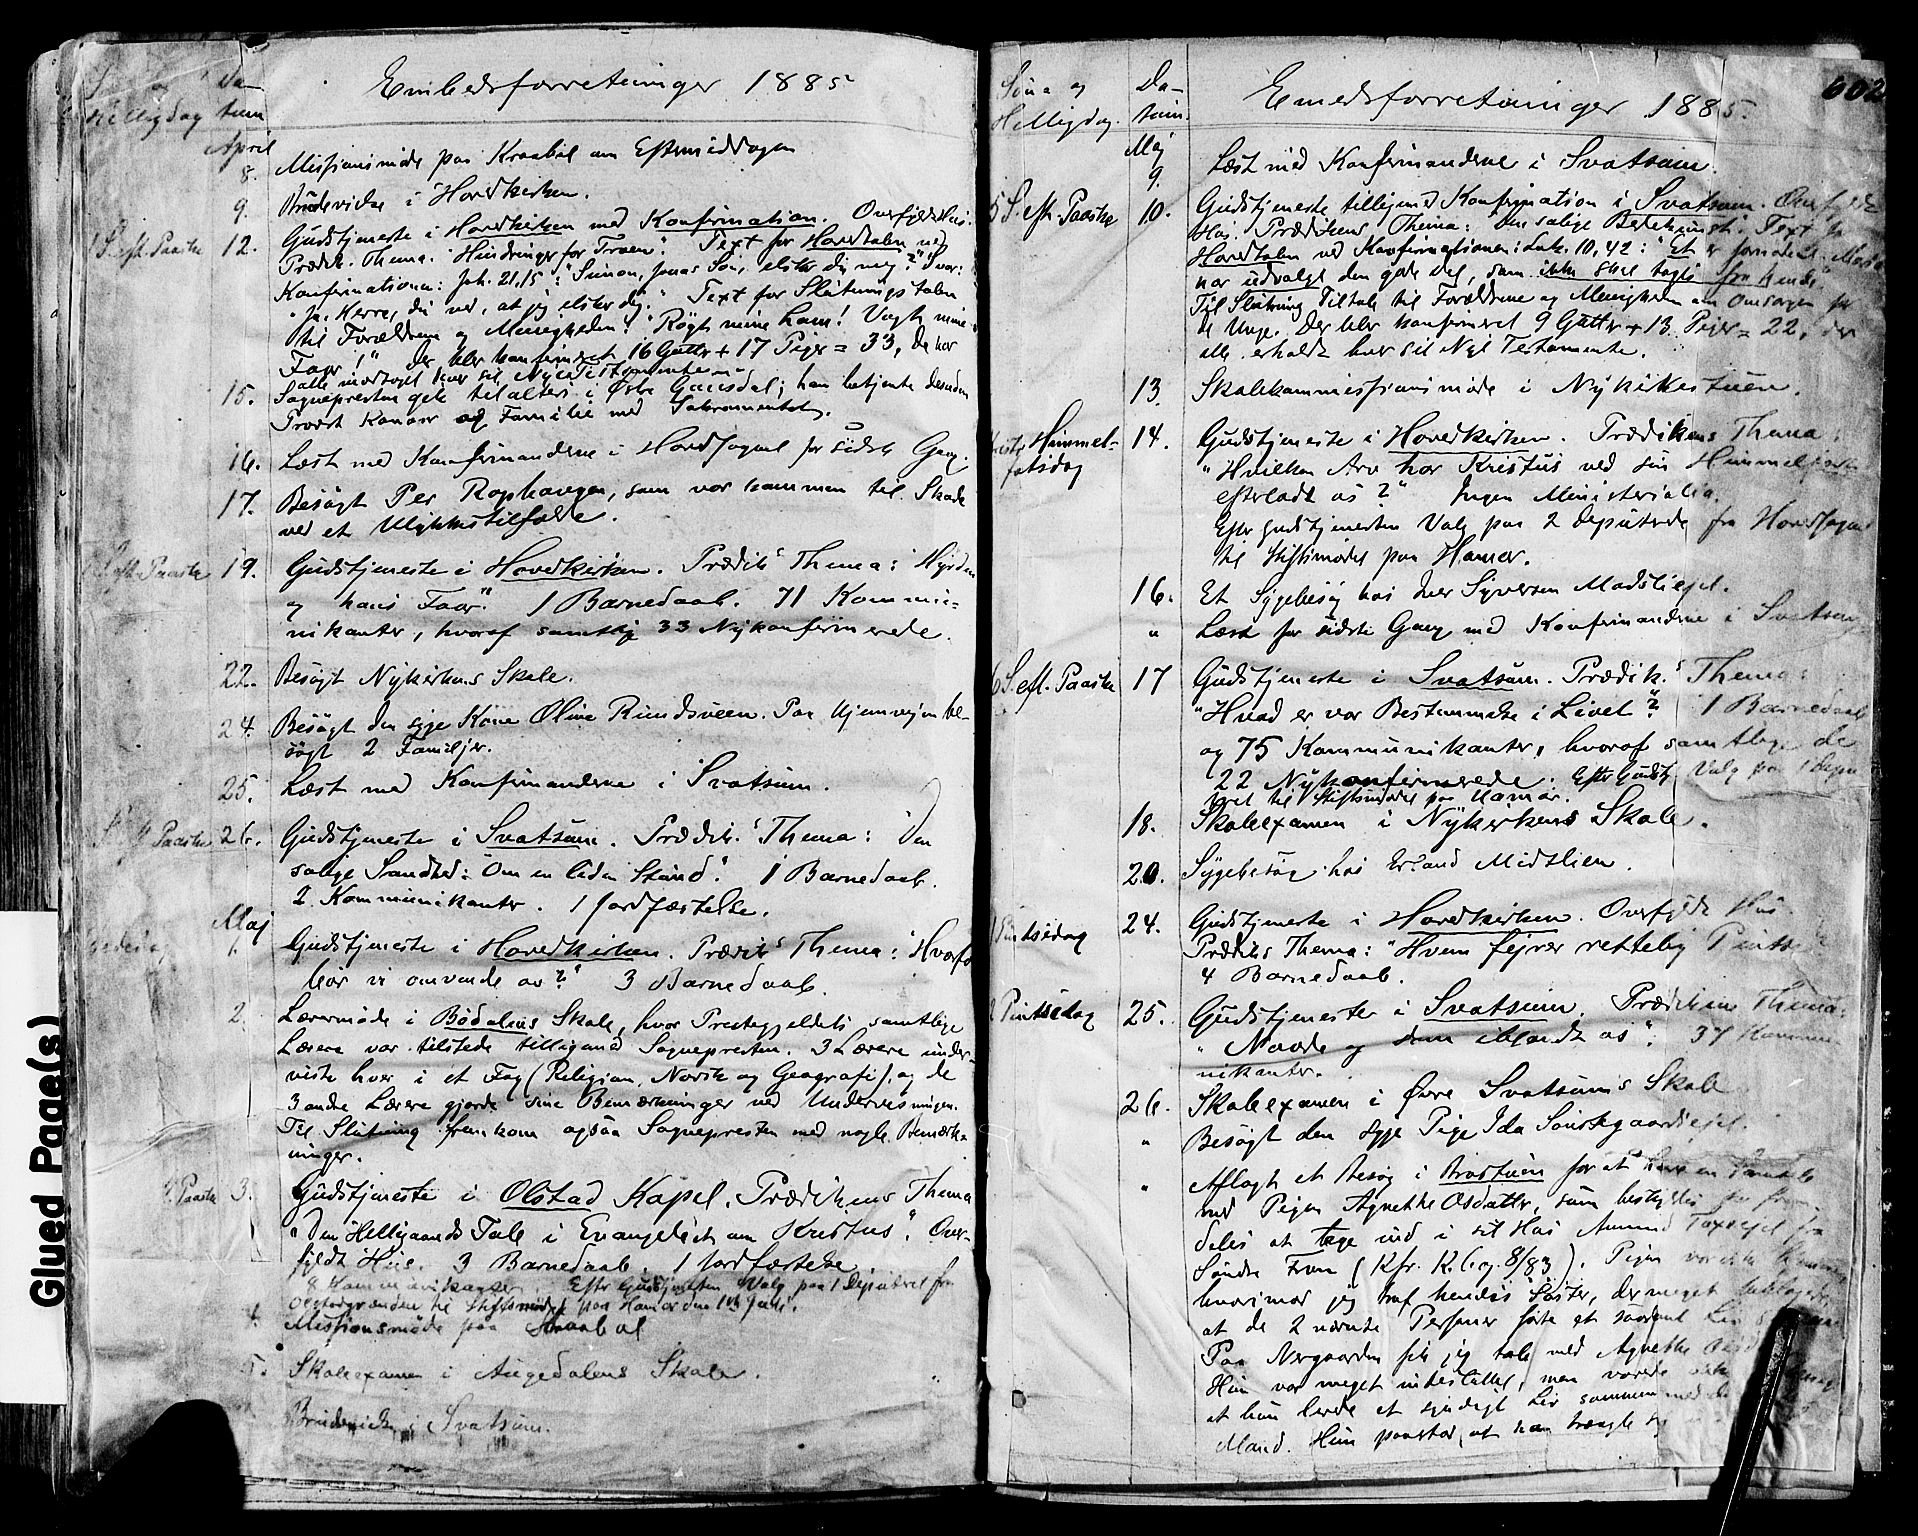 Embedsforretninger 1885
Helligdag
Da-
tum
April
8. Missionsmøde paa Kraabøl om Eftermiddagen
9. Brudevielse i Hovedkirken.
1 S. eft. Paaske 12. Gudstjeneste i Hovedkirken med Konfirmation. Overfyldt Hus.
Prædik. Thema: "Hindringer for Troen". Text for Hovedtalen ved
Konfirmationen: Joh. 21,15: "Simon, Jonas Søn, elsker du mig?" Svar:
"Ja, Herre, du ved, at jeg elsker dig." Text for Slutningstalen
til Forældrene og Menigheden: "Røgt mine Lam! Vogt mine
Faar!" Der blev konfirmeret 16 Gutter + 17 Piger = 33, de har
alle modtaget hver sit Nye Testamente.
15. Sognepresten gik til alters i Østre Gausdal; han betjente desuden
Provst Kanow og Familie med Sakramentet.
16. Læst med Konfirmanderne i Hovedsognet for sidste Gang.
17. Besøgt Per Rophaugen, som var kommen til Skade
ved et Ulykkestilfælde.
2 S. eft. Paaske 19. Gudstjeneste i Hovedkirken. Prædik.s Thema: "Hyrden
og hans Faar". 1 Barnedaab. 71 Kommu-
nikanter, hvoraf samtlige 33 Nykonfirmerede.
22. Besøgt Nykirkens Skole.
24. Besøgt den syge Kone Oline Rundsveen. Paa Hjemvejen be-
søgt 2 Familjer.
25. Læst med Konfirmanderne i Svatsum.
Paaske 26. Gudstjeneste i Svatsum. Prædik.s Thema: "Den
salige Sandhed: Om en liden Stund". 1 Barnedaab.
2 Kommunikanter. 1 Jordfæstelse.
Maj
1. Gudstjeneste i Hovedkirken. Prædik.s Thema: "Hvorfor
bør vi omvende os?" 3 Barnedaab.
2. Lærermøde i Bødalens Skole, hvor Prestegjeldets samtlige
Lærere var tilstede tilligemed Sognepresten. 3 Lærere under-
viste hver i et Fag (Religion, Norsk og Geografi), og de
3 andre Lærere gjorde sine Bemærkninger ved Undervisningen.
Til Slutning fremkom ogsaa Sognepresten med nogle Bemærk-
ninger.
Paaske 3. Gudstjeneste i Olstad Kapel. Prædikens Thema
"Den Helligaands Tale i Evangeliet om Kristus". Over-
fyldt Hus. 3 Barnedaab. 1 Jordfæstelse.
8 Kommunikanter. Efter Gudstjenesten Valg paa 1 Deputeret fra
Olstadgrænden til Stiftsmødet paa Hamar den
4. Missionsmøde paa Kraabøl
5. Skoleexamen i Augedalens Skole.
Brudevielse i Svatsum.
Glued Page(s)
602
Søn- og
Helligdag.
Da-
tum.
Embedsforretninger 1885.
Maj
9. Læst med Konfirmanderne i Svatsum.
5 S. eft. Paaske 10. Gudstjeneste tilligemed Konfirmation i Svatsum. Overfyldt
Hus. Prædikens Thema: "Den salige Bedekunst". Text for
Hovedtalen ved Konfirmationen: Luk. 10,42: "Et er fornødent. Maria
har udvalgt den gode Del, som ikke skal tages fra hende".
Til Slutning Tiltale til Forældrene og Menigheden om Omsorgen for
de Unge. Der blev konfirmeret 9 Gutter + 13 Piger = 22, der
alle erholdt hver sit Nyt Testamente.
13. Skolekommissionsmøde i Nykirkestuen.
Kristi Himmel-
fartsdag 14. Gudstjeneste i Hovedkirken. Prædikens Thema:
"Hvilken Arv har Kristus ved sin Himmelfart
efterladt os?" Ingen Ministerialia.
Efter Gudstjenesten Valg paa 2 Deputerede fra Hovedsognet
til Stiftsmødet paa Hamar.
16. Et Sygebesøg hos Iver Syversen Madsliejet.
" Læst for sidste Gang med Konfirmanderne i Svatsum.
6 S. eft. Paaske 17 Gudstjeneste i Svatsum. Prædik.s Thema:
"Hvad er vor Bestemmelse i Livet"? 1 Barnedaab
og 75 Kommunikanter, hvoraf samtlige de
22 Nykonfirmerede. Efter Gudstj. Valg paa 1 Depu-
teret til Stiftsmødet paa Hamar.
18. Skoleexamen i Nykirkens Skole.
20. Sygebesøg hos Erland Midtlien.
1 Pintsedag 24. Gudstjeneste i Hovedkirken. Overfyldt Hus.
Prædik.s Thema: "Hvem fejrer rettelig Pintse"
4 Barnedaab.
2 Pintsedag 25. Gudstjeneste i Svatsum. Prædikens Thema:
"Naade og Dom iblandt os". 37 Kommu-
nikanter.
26. Skoleexamen i Øvre Svatsums Skole
" Besøgt den syge Pige Ida
" Aflagt et Besøg i for at have en Samtale
med Pigen Agnethe Osdatter, som
deles at tage ind i sit Hus Amund
Søndre Fron (Kfr. K. og 8/83). Pigen var ikke
hvorimod jeg traf hendes Søster, der meget beklagede,
at de 2 nævnte Personer førte et saadant Liv
Paa Nergaarden fik jeg tale med Agnethe
Hun var meget indesluttet, men
at hun levde et syndigt Liv sammen med
Mand. Hun paastod, at han trængte